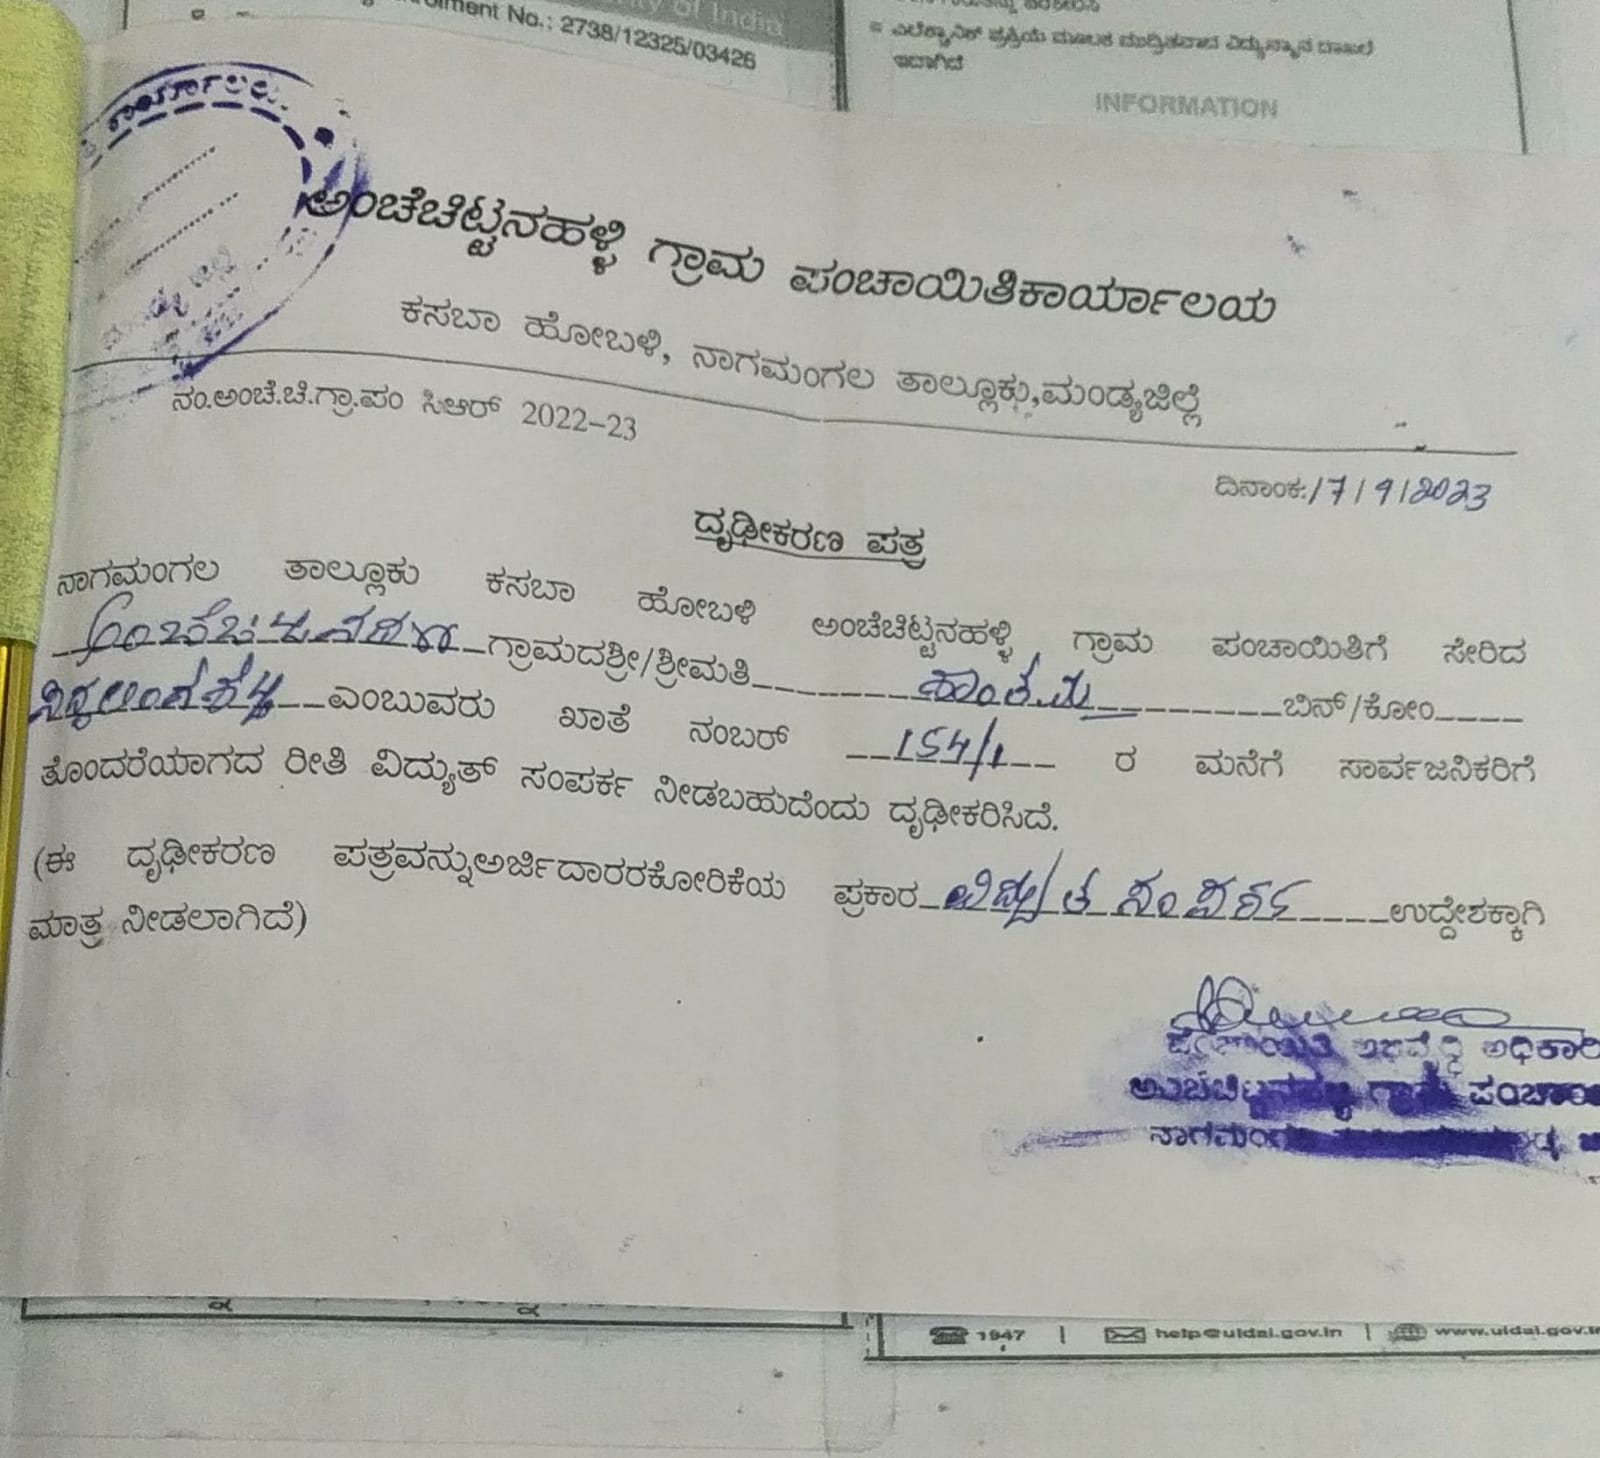 No.: 2738/12325/03426
of India
ಎಲೆಕ್ಟ್ರಾನಿಕ್ ಪ್ರಕ್ರಿಯೆ ಮೂಲಕ ಮುದ್ರಿತವಾದ
INFORMATION
ಕಾರ್ಯಾಲಯ
ಅಂಚೆಚಿಟ್ಟನಹಳ್ಳಿ ಗ್ರಾಮ ಪಂಚಾಯಿತಿಕಾರ್ಯಾಲಯ
ಕಸಬಾ ಹೋಬಳಿ, ನಾಗಮಂಗಲ ತಾಲ್ಲೂಕು,ಮಂಡ್ಯಜಿಲ್ಲೆ
ನಂ.ಅಂಚೆ.ಚಿ.ಗ್ರಾ.ಪಂ ಸಿಆರ್ 2022-23
ದಿನಾಂಕ:17/9/2023
ದೃಢೀಕರಣ ಪತ್ರ
ನಾಗಮಂಗಲ ತಾಲ್ಲೂಕು ಕಸಬಾ ಹೋಬಳಿ ಅಂಚೆಚಿಟ್ಟನಹಳ್ಳಿ ಗ್ರಾಮ ಪಂಚಾಯಿತಿಗೆ ಸೇರಿದ
ಗ್ರಾಮದಶ್ರೀ/ಶ್ರೀಮತಿ ಬಿನ್/ಕೋಂ
ಎಂಬುವರು ಖಾತೆ ನಂಬರ್ 154/1 ರ ಮನೆಗೆ ಸಾರ್ವಜನಿಕರಿಗೆ
ತೊಂದರೆಯಾಗದ ರೀತಿ ವಿದ್ಯುತ್ ಸಂಪರ್ಕ ನೀಡಬಹುದೆಂದು ದೃಢೀಕರಿಸಿದೆ.
(ಈ ದೃಢೀಕರಣ ಪತ್ರವನ್ನುಅರ್ಜಿದಾರರಕೋರಿಕೆಯ ಪ್ರಕಾರ ವಿದ್ಯುತ ಸಂಪರ್ಕ ಉದ್ದೇಶಕ್ಕಾಗಿ
ಮಾತ್ರ ನೀಡಲಾಗಿದೆ)
ಅಧಿಕಾರಿ
1947 | help@uidai.gov.in | www.uidai.gov.in